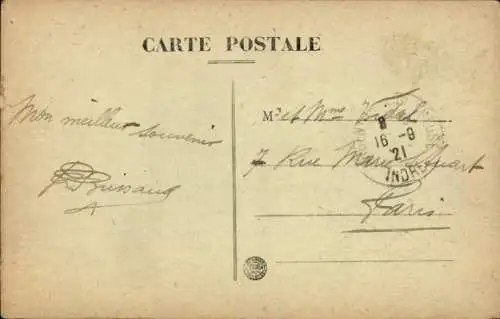 CARTE POSTALE
Mon meilleur souvenir
M. et Mme Vidal
7 Rue Marie Stuart
Paris
8
16 -9
21
INDRE